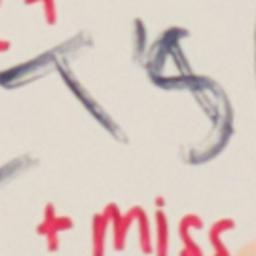 T'S
+ miss